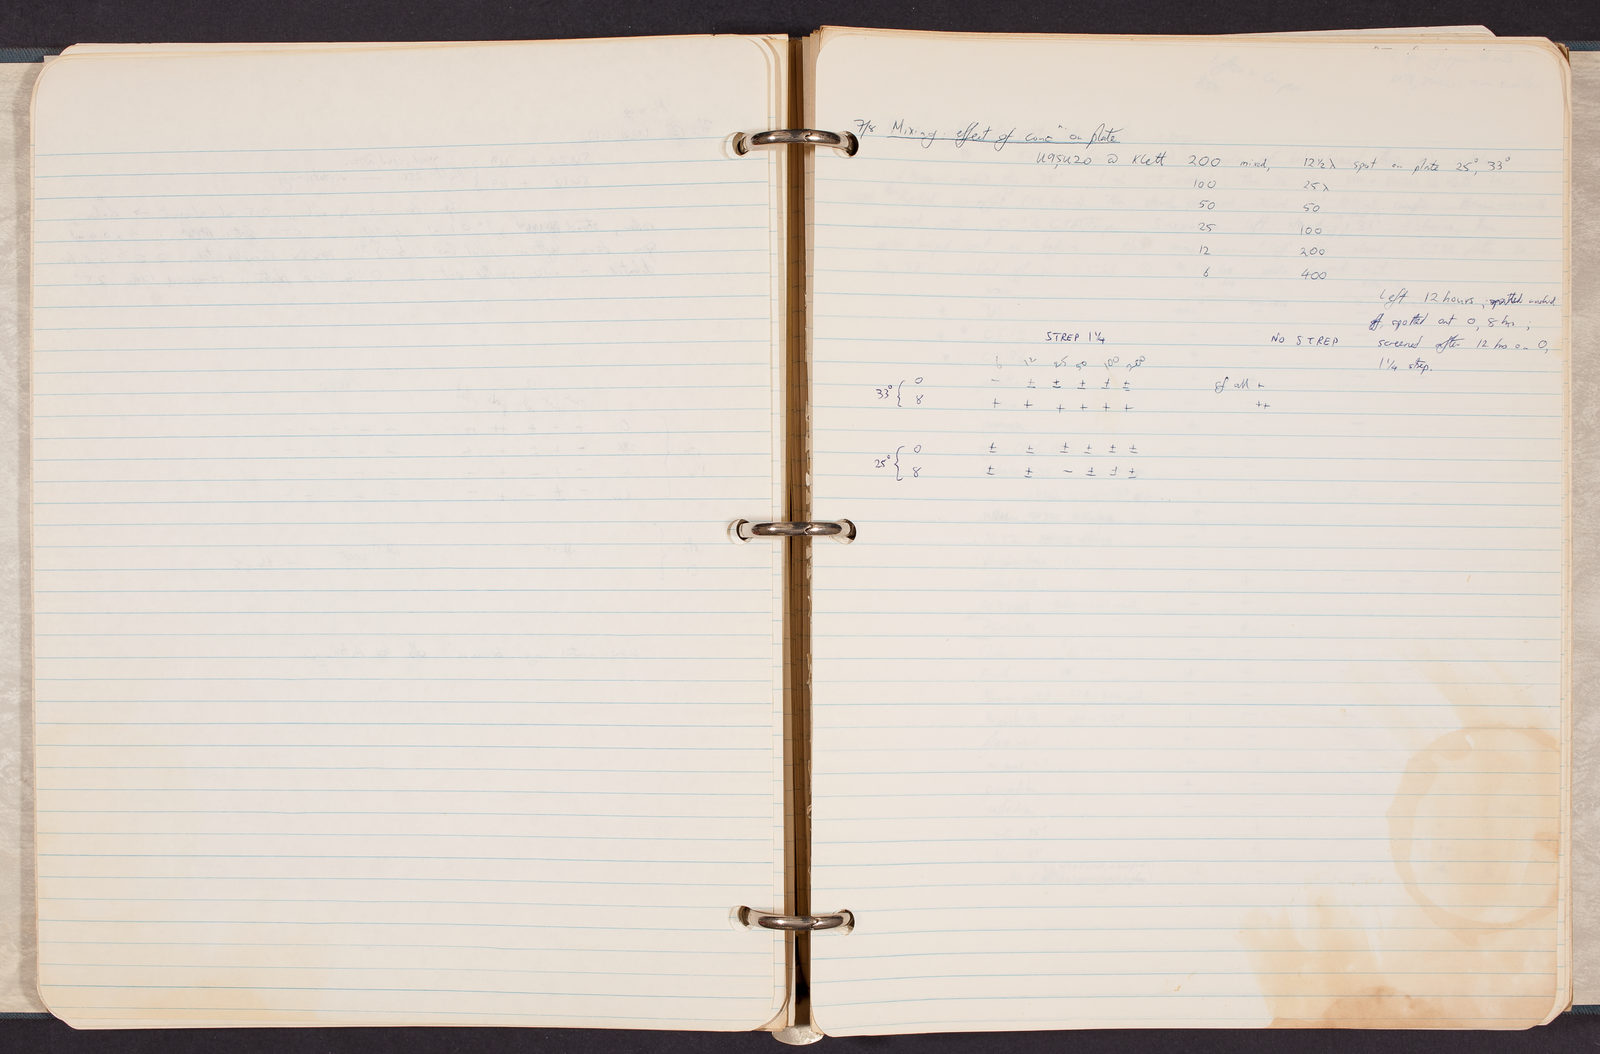 7/8 Mixing: effect of concn. on plate
U95, U20 @ Klett 200 mixed, 12½λ spot on plate 25°, 33°
100 25λ
50 50
25 100
12 200
6 400
Left 12 hours, washed
off, spotted out 0, 8 hrs;
STREP 1¼ NO STREP screened after 12 hrs on 0,
1¼ strep.
6 12 25 50 100 200
33° { 0 - ± ± ± ± ± gf all +
8 + + + + + + ++
25° { 0 ± ± ± ± ± ±
8 ± ± - ± ± ±